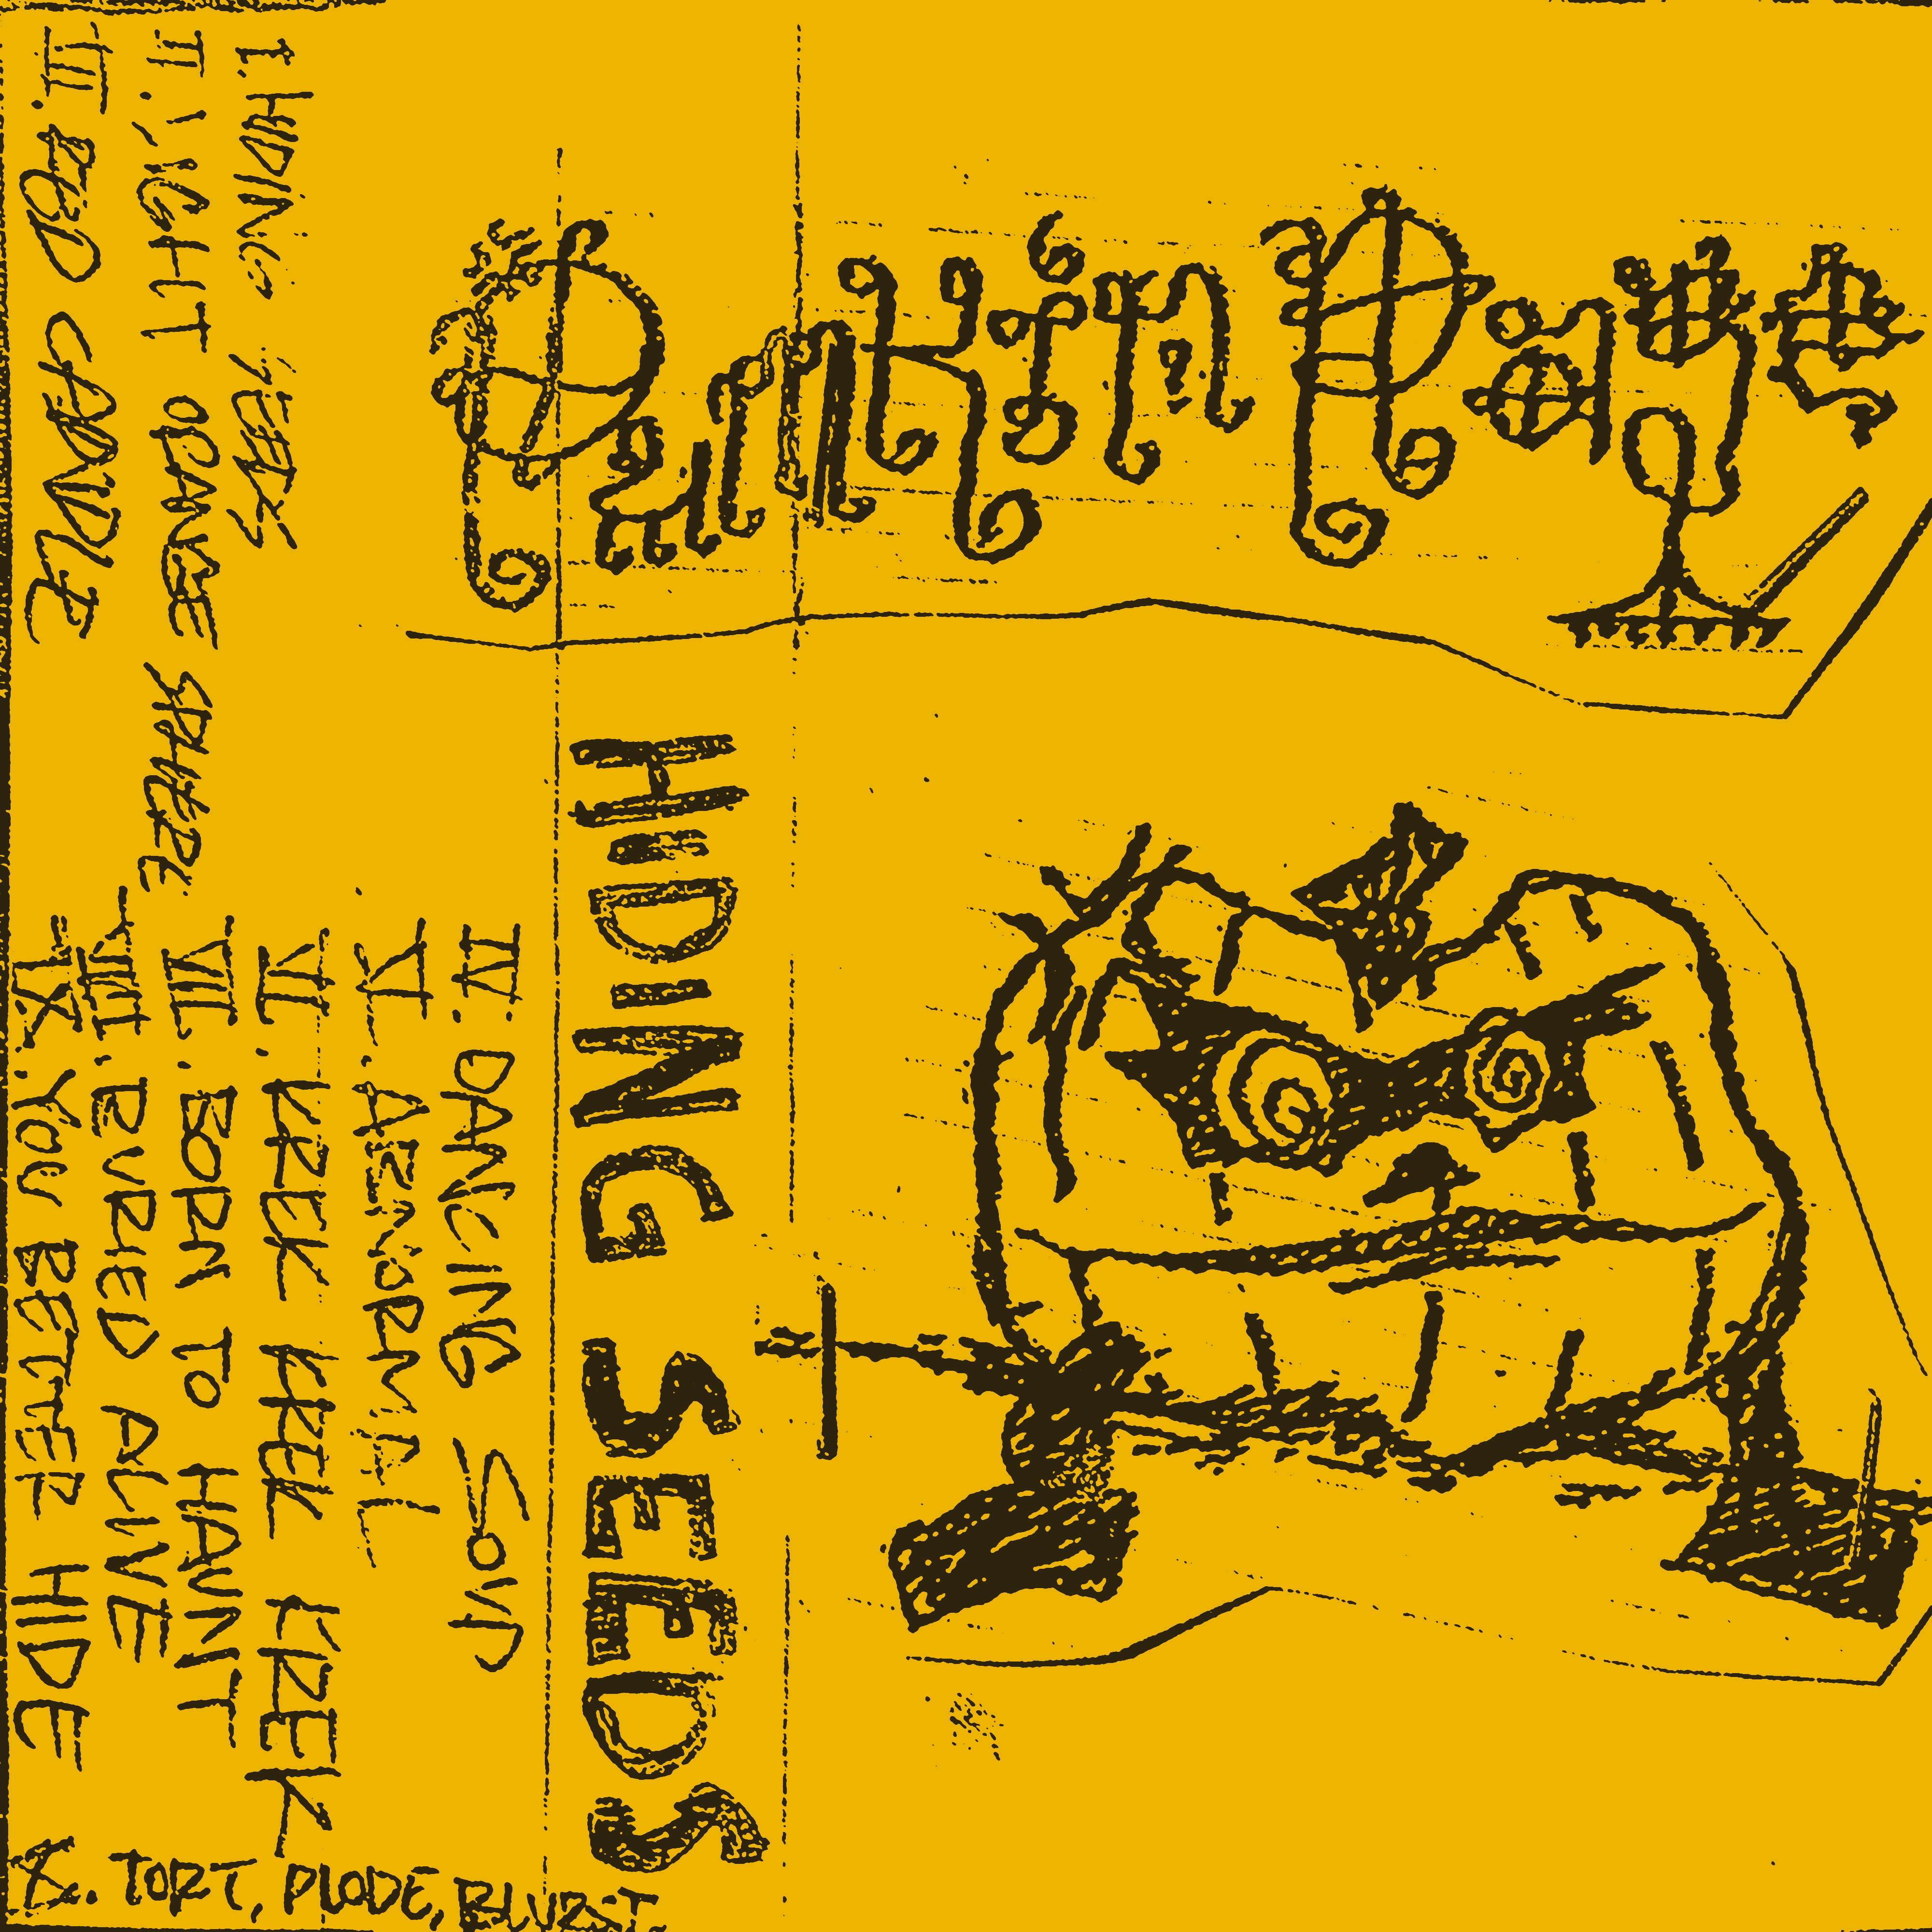 HIDING SEEDS
I. HIDING YEARS
II. LIGHT ORANGE SPHERE
III. RED CANDLE
IV. DANCING SOUL
V.
VI. KREK KREK KREK
VII. BORN TO HAUNT
VIII. BURIED ALIVE
IX. YOU BETTER HIDE
X. TORT, PLODE, BLURST.